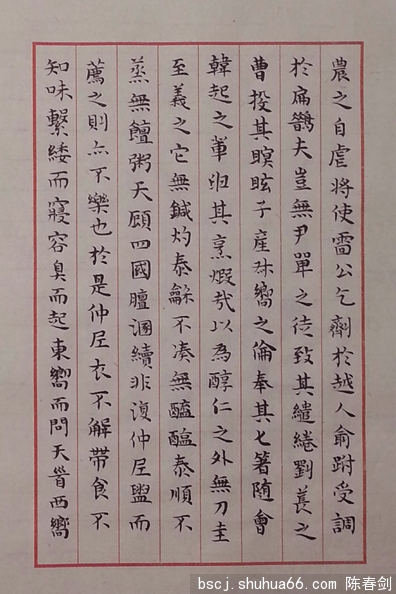 農之自虐將使雷公乞劑於越人俞跗受調
於扁鵲夫豈無尹單之徒致其繾綣劉萇之
曹投其瞑眩子產嚮之倫奉其匕箸隨會
韓起之輩其烹煆哉以為醇仁之外無刀圭
至義之它無鍼灼泰龢不凑無醯醢泰順不
蒸無饘粥天顧四國膻溷續非復仲尼盥而
薦之則亦不樂也於是仲尼衣不解帶食不
知味繫緌而寢容臭而起東嚮而問天西嚮
bscj.shuhua66.com 陈春剑